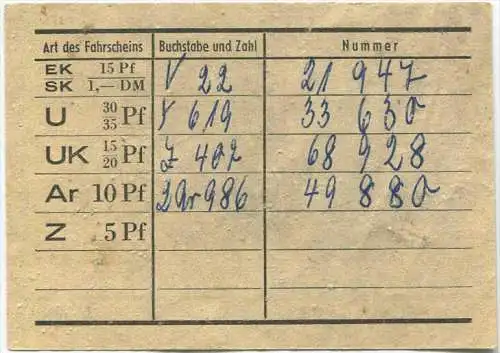 Art des Fahrscheins Buchstabe und Zahl Nummer
EK 15 Pf V 22 21 947
SK 1,— DM
U 30/35 Pf Y 619 33 630
UK 15/20 Pf Z 402 68 928
Ar 10 Pf 2Ar986 49 880
Z 5 Pf